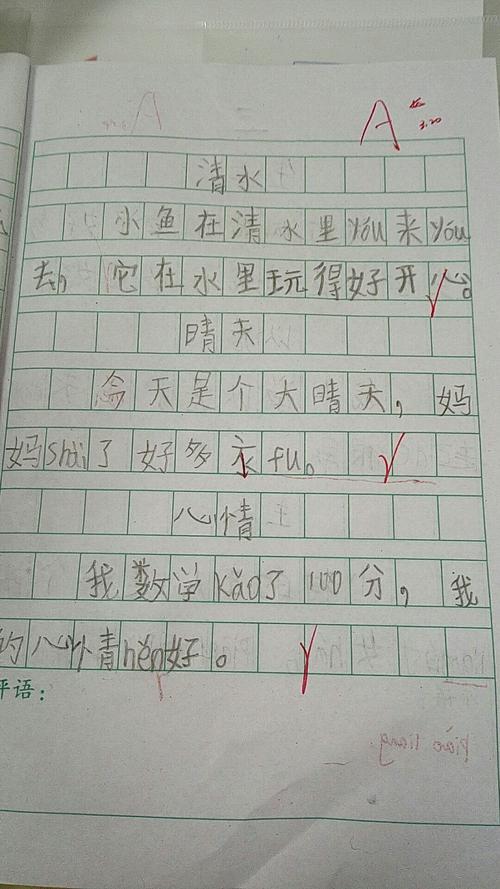 A
3.20
清水
小鱼在清水里yóu来yóu
去，它在水里玩得好开心。
晴天
今天是个大晴天，妈
妈shài了好多衣fu。
心情
我数学kǎo了100分，我
的心情hěn好。
评语：